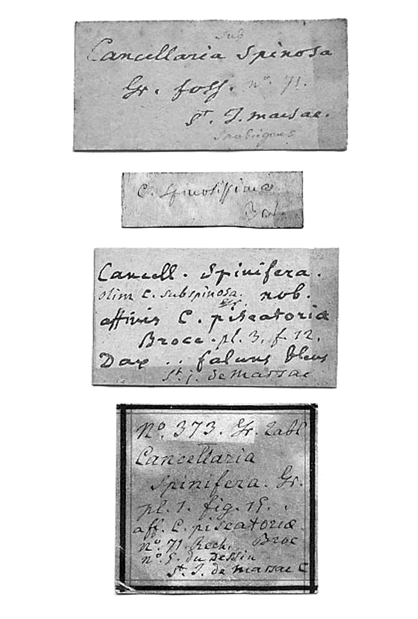 Sub
Cancellaria Spinosa
Gr. foss. n°. 71.
St. J. marsac.
Saubrigues
C. spinosissima
Cancell. Spinifera.
olim C. subspinosa. nob.
Gr.
affinis C. piscatoria
Brocc. pl. 3, f. 12.
Dax .. faluns bleus
St. j. de marsac
N°. 373. Gr. Tabl
Cancellaria
Spinifera. Gr.
pl. 1. fig. 15.
aff. C. piscatoria
Broc
n°. 71. Rech.
n°. 5. du Dessin
St. J. de marsac C